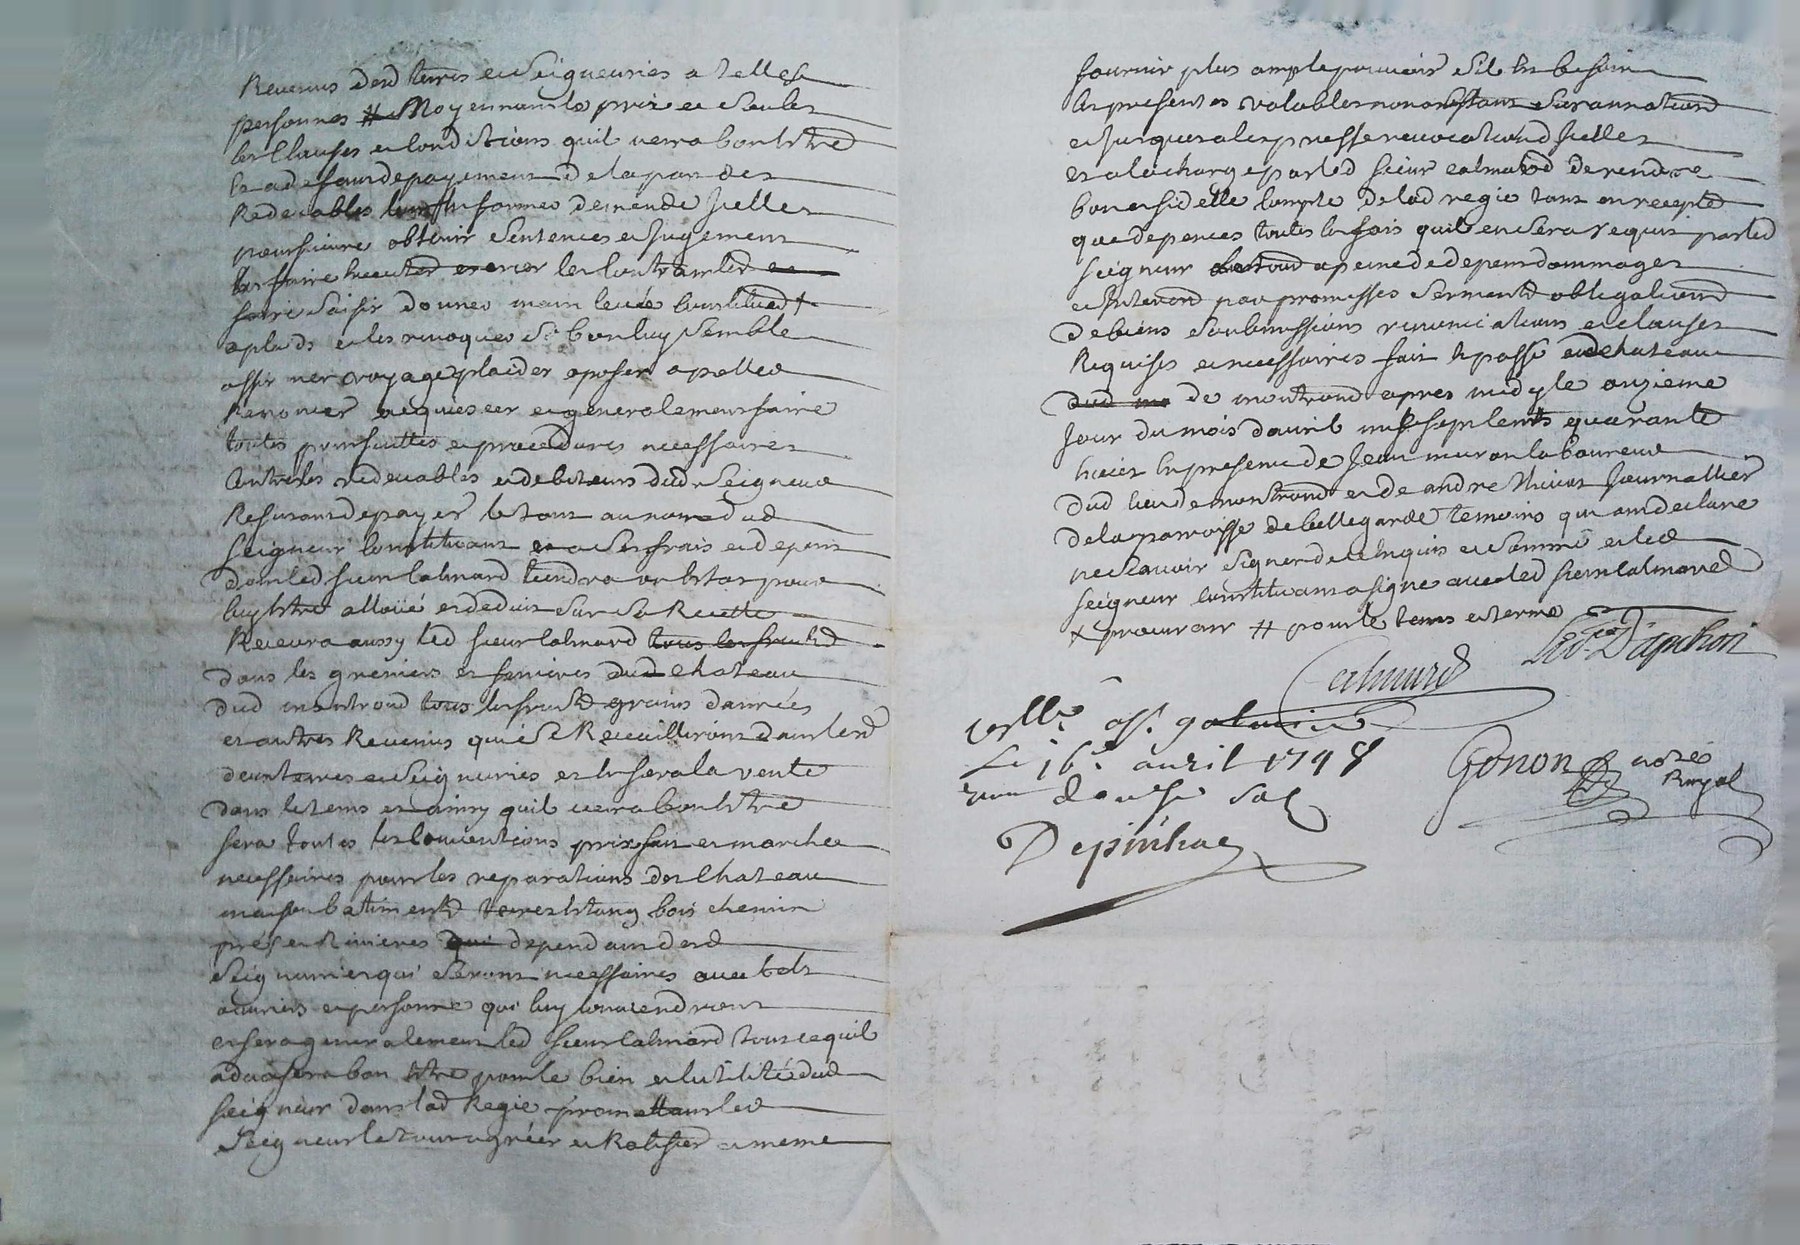 Revenus desd terres et Seigneuries a telles
personnes # Moyennant le prix et Soubs
les Clauses et Conditions quil verra bon Estre
Et a defaut de payement de la part des
Redevables former demande Jcelles
poursuivre obtenir Sentences et Jugement
les faire Executer
faire Saisir donner main levée Constitued +
a plaids et les revoquer Si bon luy Semble
affirmer voyages plaider oposer apeller
Renoncer acquiescer et generalement faire
toutes poursuittes et procedures necessaires
Contre les redevables et debiteurs dud Seigneur
Refusants de payer le tout au nom dud
Seigneur Constituant et a Ses frais et depens
dont led Sieur Calmard tiendra pour
luy Estre alloüé et deduit Sur Sa Recette
Recevra aussy led Sieur Calmard tous les fruitd
dans les greniers et fenieres dud chateau
dud montrond tous les fruitd grains danrées
et autres Revenus qui Se Recuilliront dans lesd
deux terres et Seigneuries et En fera la vente
dans le tems et ainsy quil verra bon Estre
fera toutes les Conventions prix fait et marchez
necessaires pour les reparations des Chateau
maison batiments terres Etang bois chemin
prés et Rivieres qui dependant desd
Seigneuries qui Seront necessaires avec tels
ouvriers et personne qui luy conviendront
et fera generalement led Sieur Calmard tout ce quil
advisera bon Estre pour le bien et lutilité dud
Seigneur dans lad Regie promettant led
Seigneur le tout agréer et Ratiffier et meme
fournir plus ample pouvoir Sil En besoin
les presentes valables nonobstant Surannationd
et Jusques a Expresse revocationd Jcelles
et a la charge par led Sieur Calmard de rendre
bon et fidelle Compte de lad regie tant en recepte
que depences toutes les fois quil en Sera requis par led
Seigneur a peine de depens dommages
et Jnterend par promesses Sermentd obligationd
de biens Soubmissions renonciations et clauses
Requises et necessaires fait et passé aud chateau
dud mo de montrond apres midy le onzieme
Jour du mois davril mil sept Cents quarante
huict En presence de Jean laboureur
dud lieu de montrond et de andre Journallier
de la parroisse de bellegarde temoins qui ont declare
ne Scavoir Signer de ce Enquis et Sommé et led
Seigneur Constituant a Signe avec led Sieur Calmard
+ procureur # pour le tems et terme
D'apchon
Calmard
Conllé. à St. galmier
Le 16e. avril 1748
douse sols
Gonon note
Royal
Depinhac